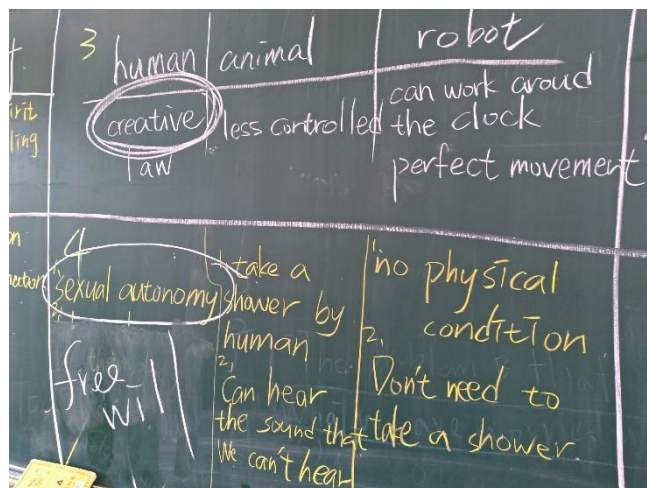 3
human
animal
robot
creative
law
less controlled
can work aroud
the clock
perfect movement
irit
ling
4
sexual autonomy
free-
will
take a
shower by
human
2,
Can hear
the sound that
We can't hear
1,
no physical
condition
2,
Don't need to
take a shower.